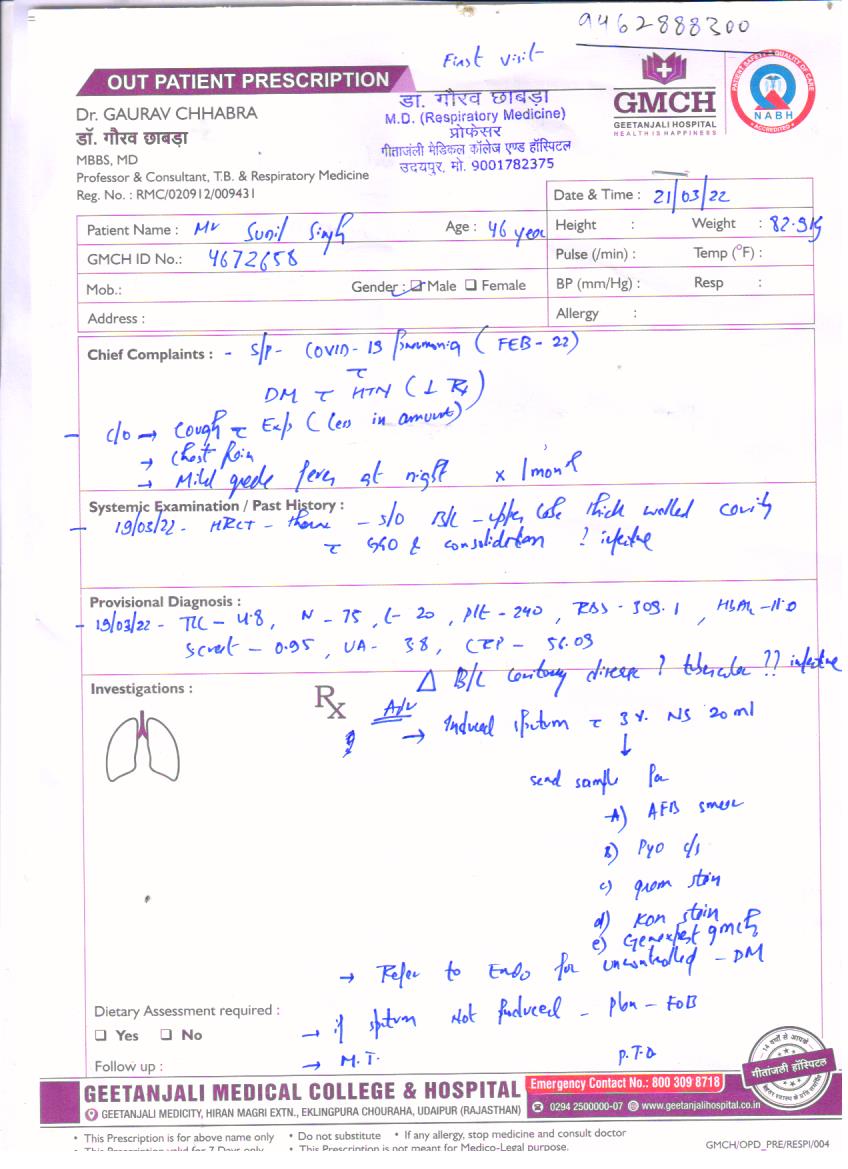 9462888300
First visit
OUT PATIENT PRESCRIPTION
Dr. GAURAV CHHABRA
डॉ. गौरव छाबड़ा
MBBS, MD
Professor & Consultant, T.B. & Respiratory Medicine
Reg. No. : RMC/020912/009431
डा. गौरव छाबड़ा
M.D. (Respiratory Medicine)
प्रोफेसर
गीतांजली मेडिकल कॉलेज एण्ड हॉस्पिटल
उदयपुर, मो. 9001782375
GMCH
GEETANJALI HOSPITAL
HEALTH IS HAPPINESS
PATIENT SAFETY & QUALITY OF CARE
NABH
ACCREDITED
Date & Time : 21/03/22
Patient Name : Mr Sunil Singh Age : 46 year
Height : Weight : 82.9kg
GMCH ID No.: 4672658
Pulse (/min) : Temp (°F) :
Mob.: Gender : Male Female
BP (mm/Hg) : Resp :
Address :
Allergy :
Chief Complaints : - S/P- COVID-19 Pneumonia (FEB-22)
c̅
DM c̅ HTN (⊥ Rx)
- c/o → Cough c̅ Exp (less in amount)
→ Chest Pain
→ Mild grade fever at night x 1 month
Systemic Examination / Past History :
- 19/03/22 - HRCT - thorax - s/o B/L - upper lobe thick walled cavity
c̅ GGO & consolidation ? infective
Provisional Diagnosis :
- 19/03/22 - TLC - 4.8, N - 75, L - 20, Plt - 240, RBS - 309.1, HbA1c - 11.0
S creat - 0.95, UA - 3.8, CRP - 56.09
Δ B/L cavitary disease ? tubercular ?? infective
Investigations :
Rx
Adv
→ Induced sputum c̅ 3% NS 20 ml
↓
send sample for
A) AFB smear
B) Pyo c/s
c) gram stain
d) KOH stain
e) Genexpert gmch
→ Refer to Endo for uncontrolled - DM
Dietary Assessment required :
Yes No
→ if sputum Not Produced - plan - FOB
Follow up :
→ M.T. P.T.O
14 वर्षों से आपके
गीतांजली हॉस्पिटल
GEETANJALI MEDICAL COLLEGE & HOSPITAL
Emergency Contact No.: 800 309 8718
GEETANJALI MEDICITY, HIRAN MAGRI EXTN., EKLINGPURA CHOURAHA, UDAIPUR (RAJASTHAN)
0294 2500000-07 www.geetanjalihospital.co.in
• This Prescription is for above name only • Do not substitute • If any allergy, stop medicine and consult doctor
• This Prescription valid for 7 Days only • This Prescription is not meant for Medico-Legal purpose.
GMCH/OPD_PRE/RESPI/004